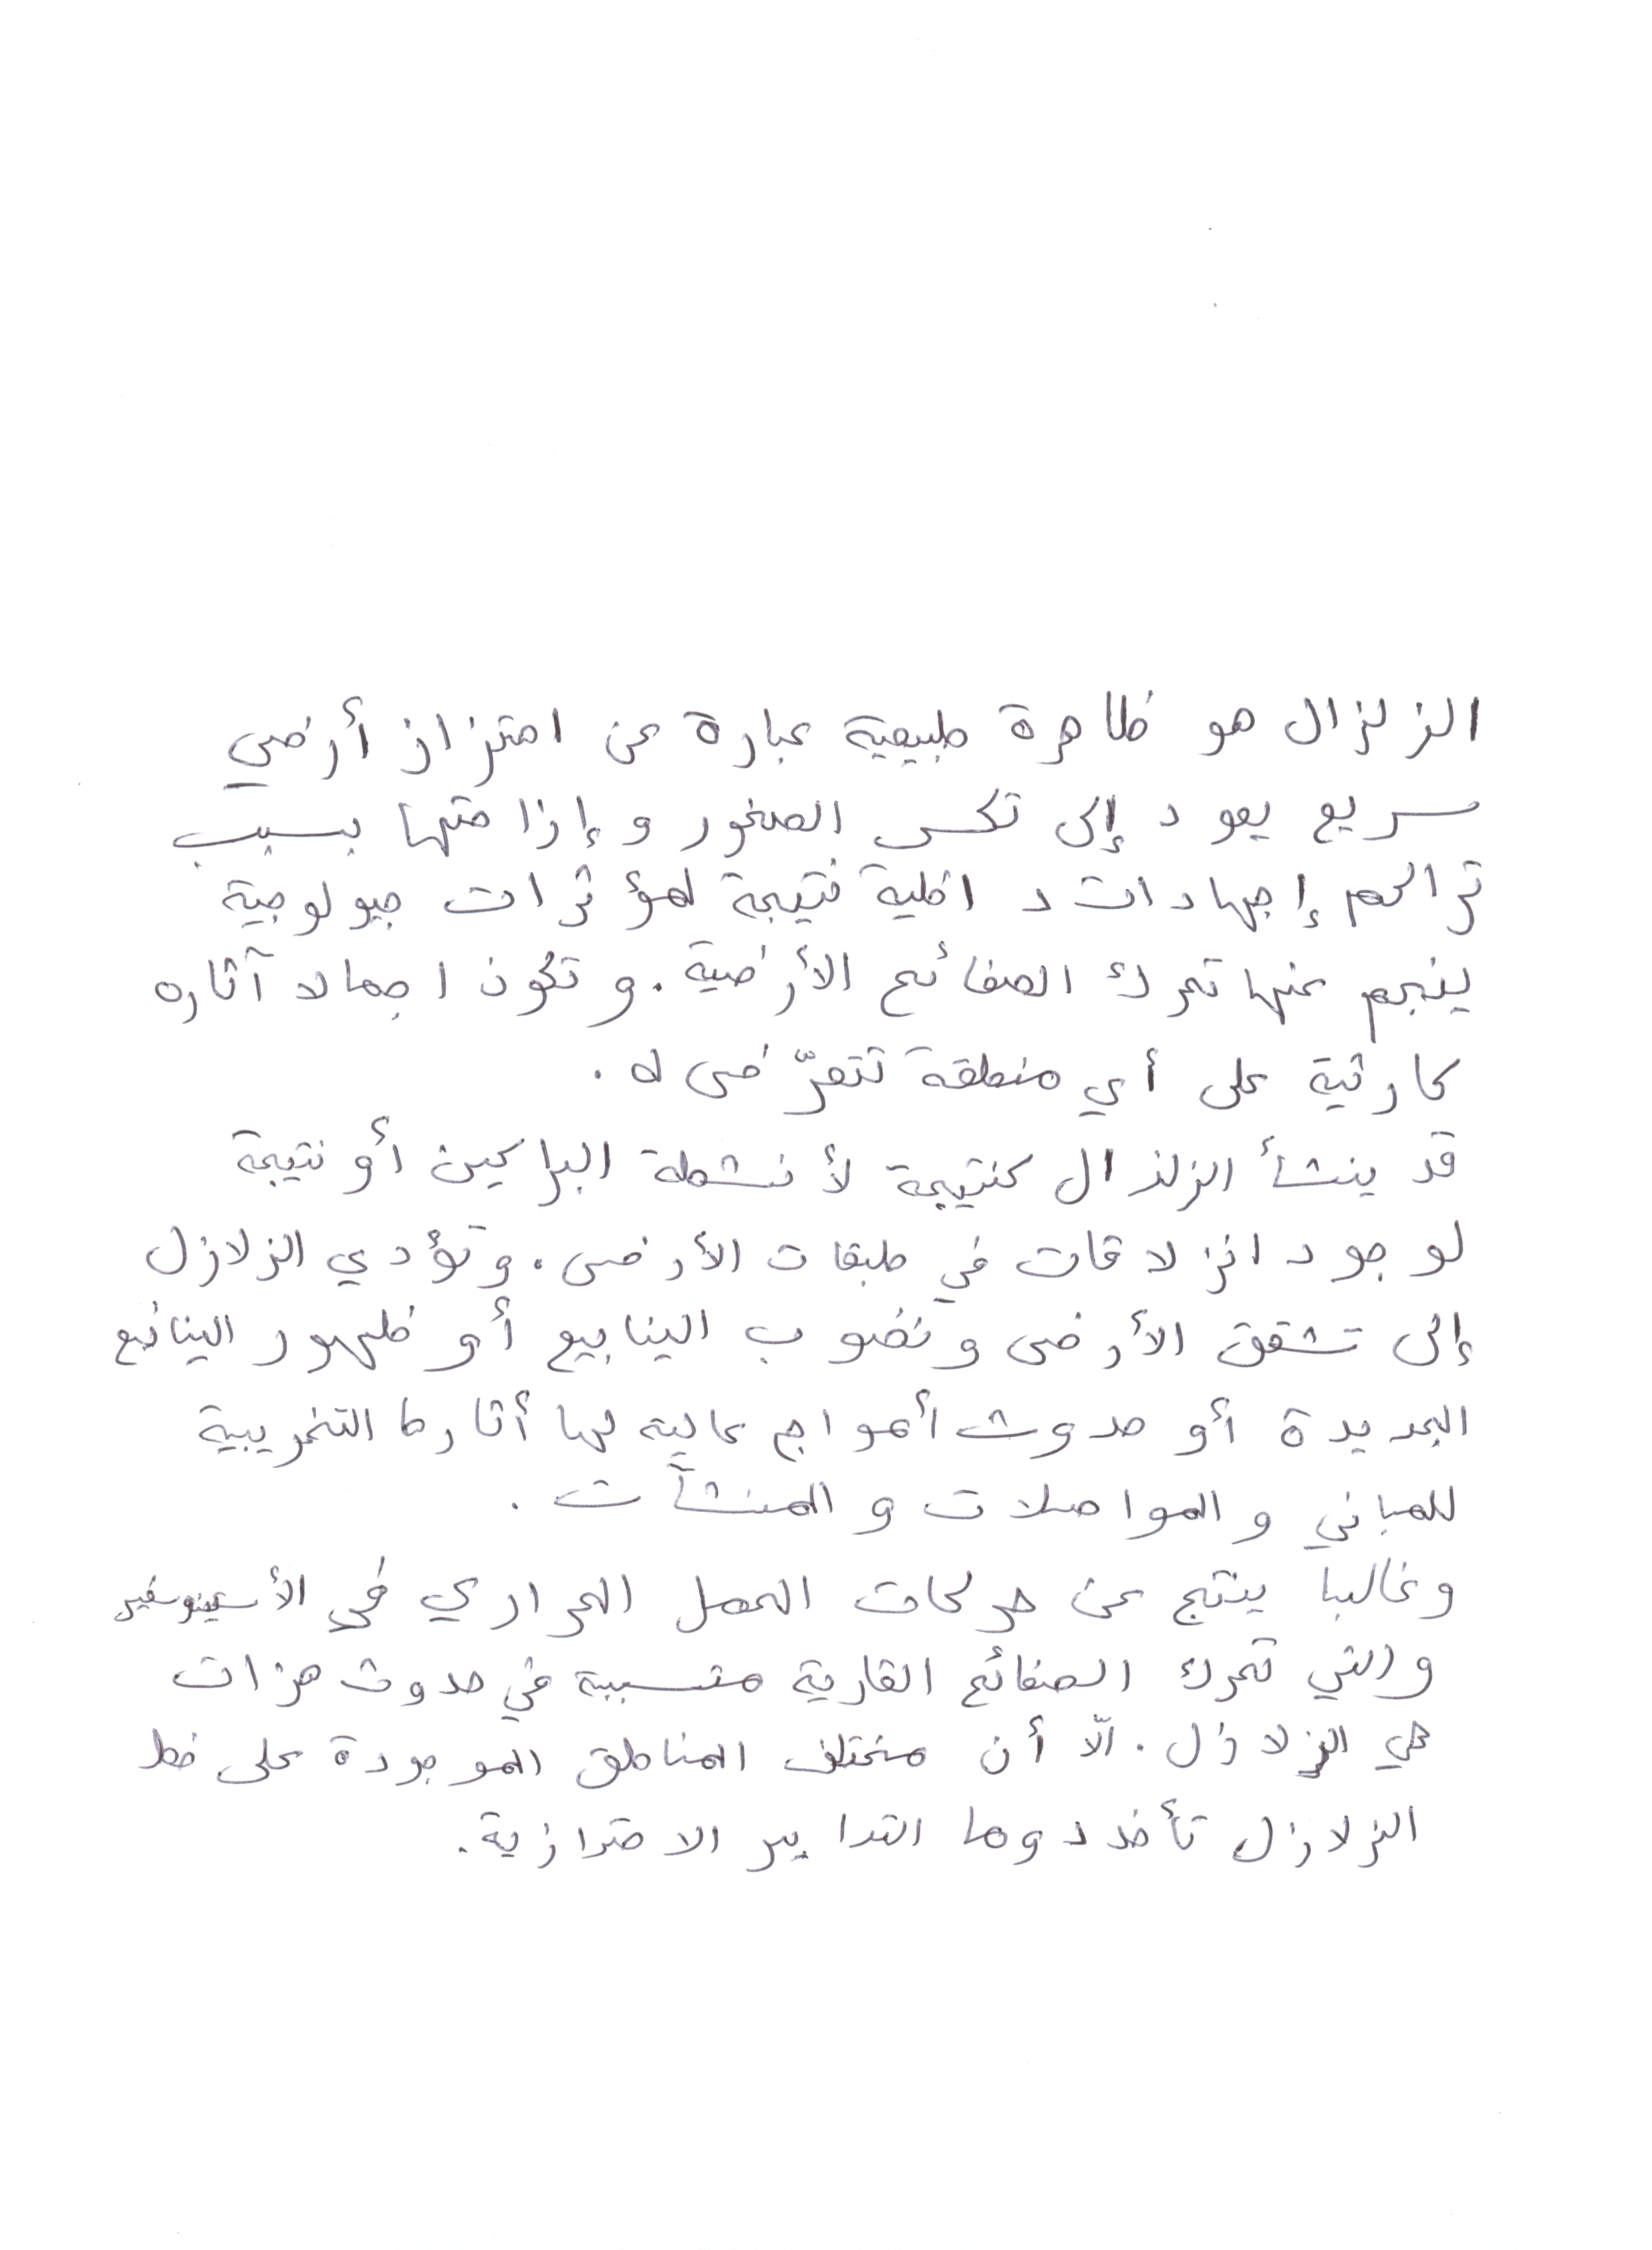 الزلزال هو ظاهرة طبيعية عبارة عن اهتزاز أرضي
سريع يعود إلى تكسر الصخور وإزاحتها بسبب
تراكم إجهادات داخلية نتيجة لمؤثرات جيولوجية
ينجم عنها تحرك الصفائح الأرضية. وتكون اجمالا آثاره
كارثية على أي منطقة تتعرّض له.
قد ينشأ الزلزال كنتيجة لأنشطة البراكين أو نتيجة
لوجود انزلاقات في طبقات الأرض. وتؤدي الزلازل
إلى تشقق الأرض ونضوب الينابيع أو ظهور الينابيع
الجديدة أو حدوث أمواج عالية لها أثارها التخريبية
للمباني والمواصلات والمنشآت.
وغالبا ينتج عن حركات الحمل الحراري في الأسينوسفير
والتي تحرك الصفائح القارية متسببة في حدوث هزات
هي الزلازل. الّا أن مختلف المناطق الموجودة على خط
الزلازل تأخذ دوما التدابير الاحترازية.